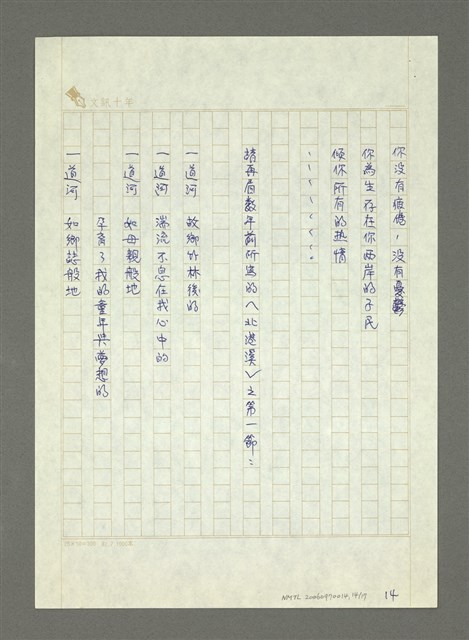 文訊十年
你沒有疲憊，沒有憂鬱
你為生存在你兩岸的子民
傾你所有的热情
、、、、、、。
請再看數年前所寫的〈北港溪〉之第一節：
一道河　故鄉竹林後的
一道河　湍流不息在我心中的
一道河　如母親般地
孕育了我的童年與夢想的
一道河　如鄉誌般地
NMTL 20060970014, 14/17
14